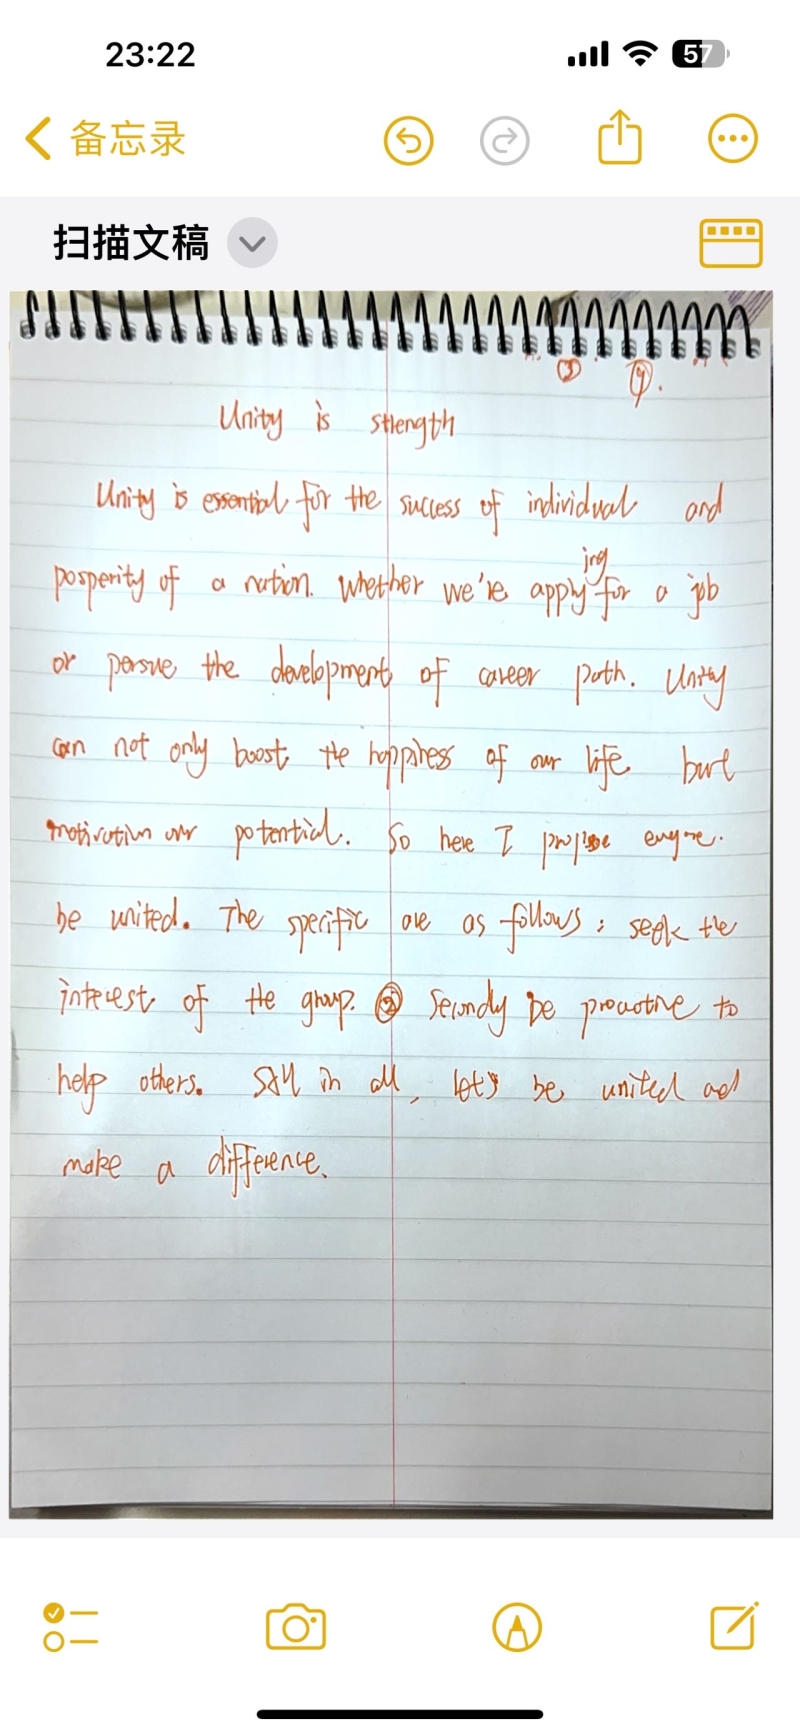 23:22
57
备忘录
扫描文稿
③ ④.
Unity is strength
Unity is essential for the success of individual and
posperity of a nation. Whether we're applying for a job
or persue the development of career path. Unity
can not only boost the happiness of our life but
motivation our potential. So here I propose
be united. The specific are as follows: seek the
interest of the group. ② Secondly be proactive to
help others. in all, let's be united and
make a difference.